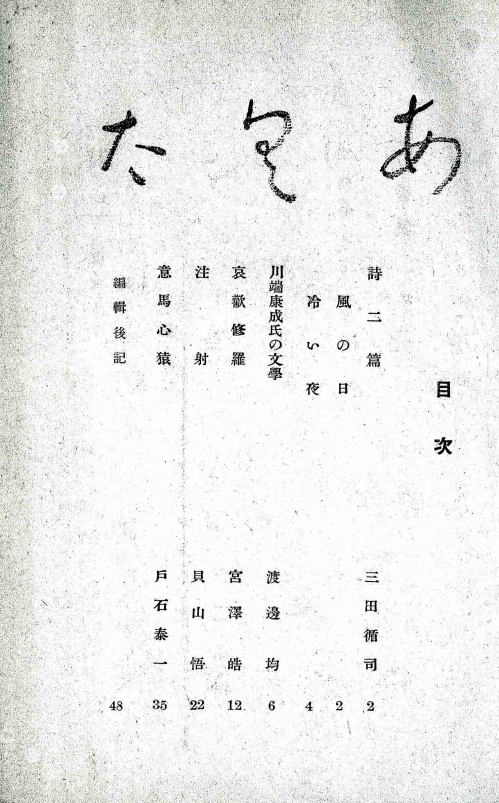 あくた
目次
詩二篇 三田循司 2
風の日 2
冷い夜 4
川端康成氏の文學 渡邊均 6
哀歡修羅 宮澤皓 12
注射 貝山悟 22
意馬心猿 戶石泰一 35
編輯後記 48